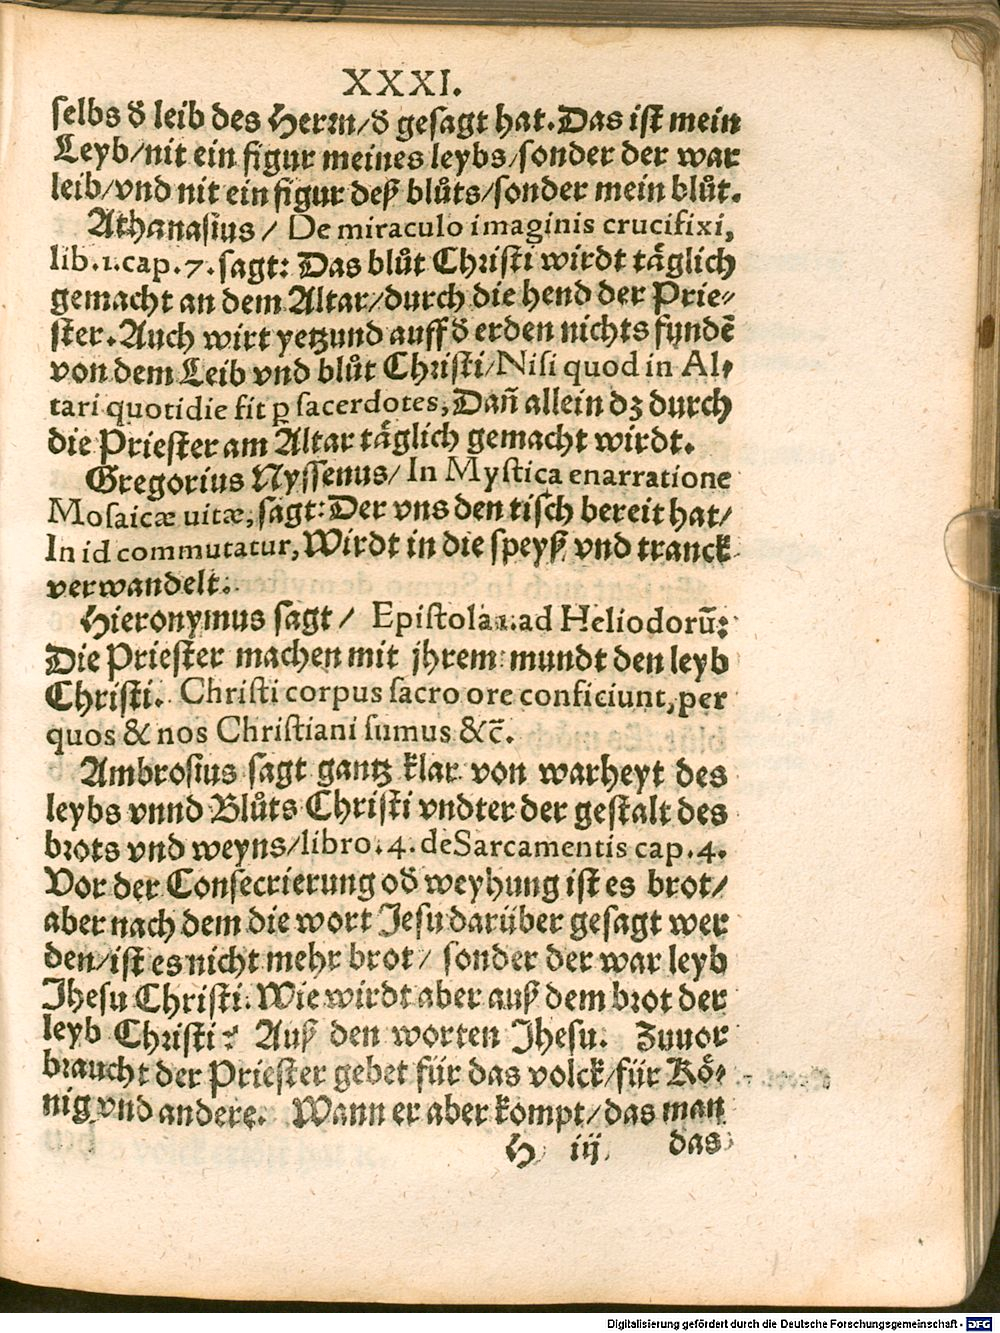 XXXI.
selbs ď leib des Herrn/ď gesagt hat. Das ist mein
Leyb/nit ein figur meines leybs/sonder der war
leib/vnd nit ein figur deß blůts/sonder mein blůt.
Athanasius/ De miraculo imaginis crucifixi,
lib. 1. cap. 7. sagt: Das blůt Christi wirdt täglich
gemacht an dem Altar/durch die hend der Prie-
ster. Auch wirt yetzund auff ď erden nichts fundē
von dem Leib vnd blůt Christi/Nisi quod in Al-
tari quotidie fit ꝑ sacerdotes, Dañ allein dz durch
die Priester am Altar täglich gemacht wirdt.
Gregorius Nyssenus/ In Mystica enarratione
Mosaicæ uitæ, sagt: Der vns den tisch bereit hat/
In id commutatur, Wirdt in die speyß vnd tranck
verwandelt.
Hieronymus sagt/ Epistola 1. ad Heliodorū:
Die Priester machen mit jhrem mundt den leyb
Christi. Christi corpus sacro ore conficiunt, per
quos & nos Christiani sumus &c̄.
Ambrosius sagt gantz klar von warheyt des
leybs vnnd Blůts Christi vndter der gestalt des
brots vnd weyns/libro. 4. de Sarcamentis cap. 4.
Vor der Consecrierung oď weyhung ist es brot/
aber nach dem die wort Jesu darüber gesagt wer
den/ist es nicht mehr brot/ sonder der war leyb
Jhesu Christi. Wie wirdt aber auß dem brot der
leyb Christi? Auß den worten Jhesu. Zuuor
braucht der Priester gebet für das volck/für Kö-
nig vnd andere. Wann er aber kompt/das man
H iij das
Digitalisierung gefördert durch die Deutsche Forschungsgemeinschaft - DFG